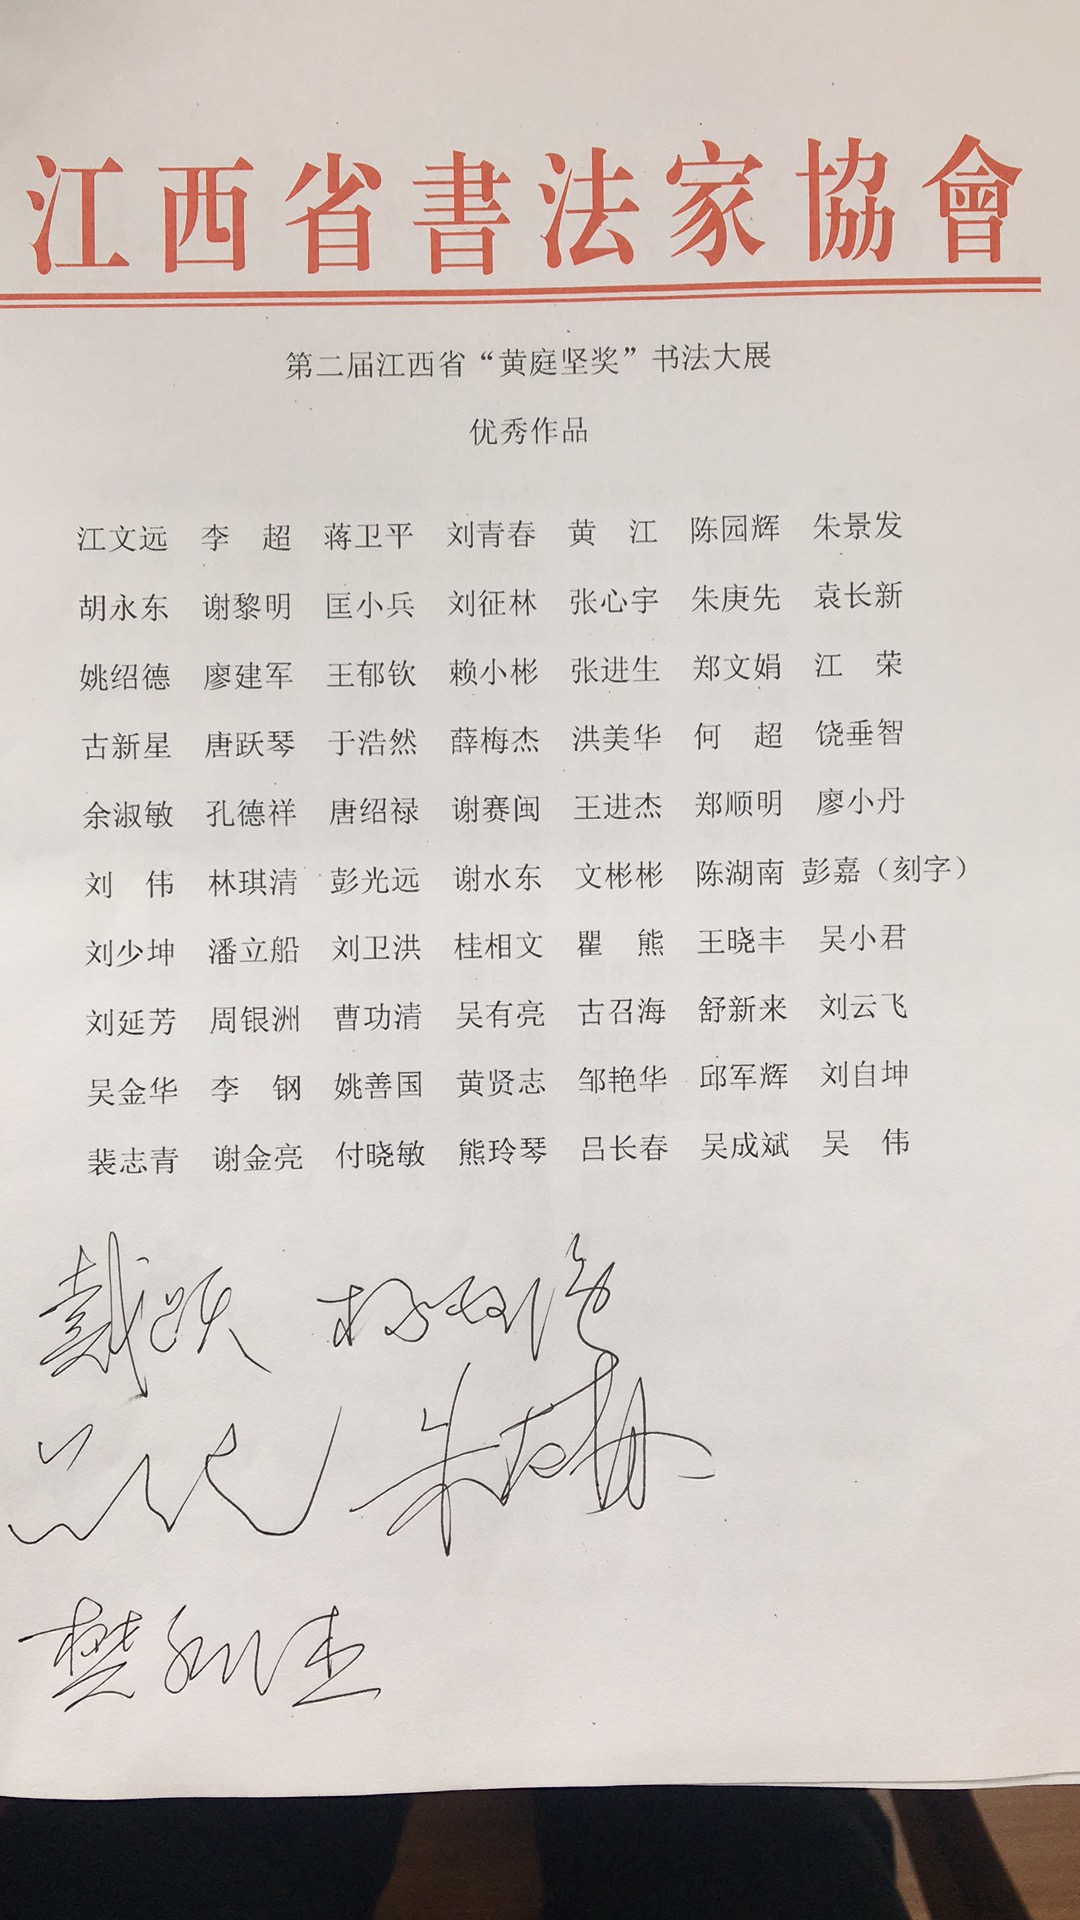 江西省書法家協會
第二届江西省“黄庭坚奖”书法大展
优秀作品
江文远 李 超 蒋卫平 刘青春 黄 江 陈园辉 朱景发
胡永东 谢黎明 匡小兵 刘征林 张心宇 朱庚先 袁长新
姚绍德 廖建军 王郁钦 赖小彬 张进生 郑文娟 江 荣
古新星 唐跃琴 于浩然 薛梅杰 洪美华 何 超 饶垂智
余淑敏 孔德祥 唐绍禄 谢赛闽 王进杰 郑顺明 廖小丹
刘 伟 林琪清 彭光远 谢水东 文彬彬 陈湖南 彭嘉（刻字）
刘少坤 潘立船 刘卫洪 桂相文 瞿 熊 王晓丰 吴小君
刘延芳 周银洲 曹功清 吴有亮 古召海 舒新来 刘云飞
吴金华 李 钢 姚善国 黄贤志 邹艳华 邱军辉 刘自坤
裴志青 谢金亮 付晓敏 熊玲琴 吕长春 吴成斌 吴 伟
戴跃